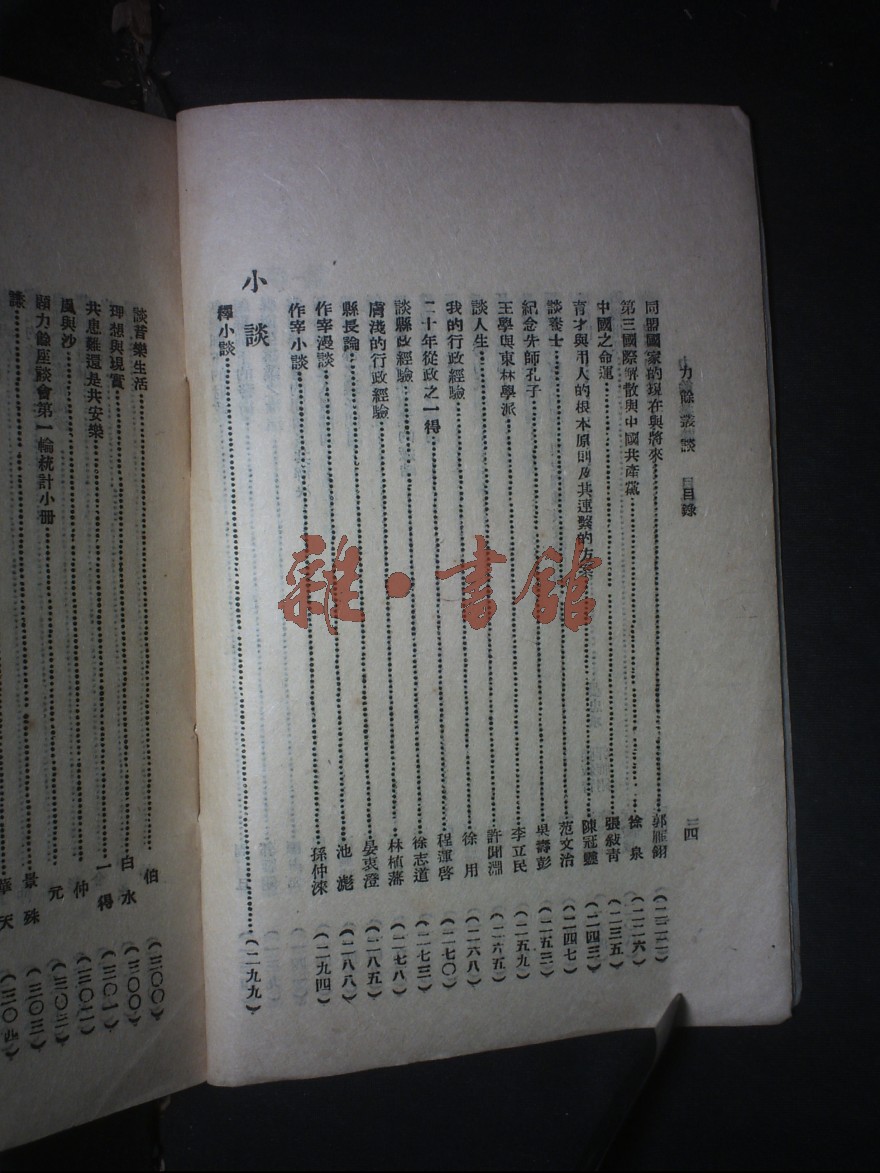 力餘叢談 目錄 三四
同盟國家的現在與將來 郭雁翎 (二二二)
第三國際解散與中國共產黨 徐泉 (二二六)
中國之命運 張敍青 (二三五)
育才與用人的根本原則及其連繫的方案 陳冠靈 (二四三)
談養士 范文治 (二四七)
紀念先師孔子 吳壽彭 (二五三)
王學與東林學派 李立民 (二五九)
談人生 許聞淵 (二六五)
我的行政經驗 徐用 (二六八)
二十年從政之一得 程運啓 (二七〇)
談縣政經驗 徐志道 (二七三)
膚淺的行政經驗 林楨藩 (二七八)
縣長論 晏衷澄 (二八五)
作宰漫談 池彪 (二八八)
作宰小談 孫仲淶 (二九四)
小談
釋小談 (二九九)
談昔樂生活 伯 (三〇〇)
理想與現實 白水 (三〇〇)
共患難還是共安樂 一得 (三〇一)
風與沙 仲 (三〇二)
題力餘座談會第一輪統計小冊 元 (三〇三)
談 景殊 (三〇三)
華天 (三〇四)
雜·書館